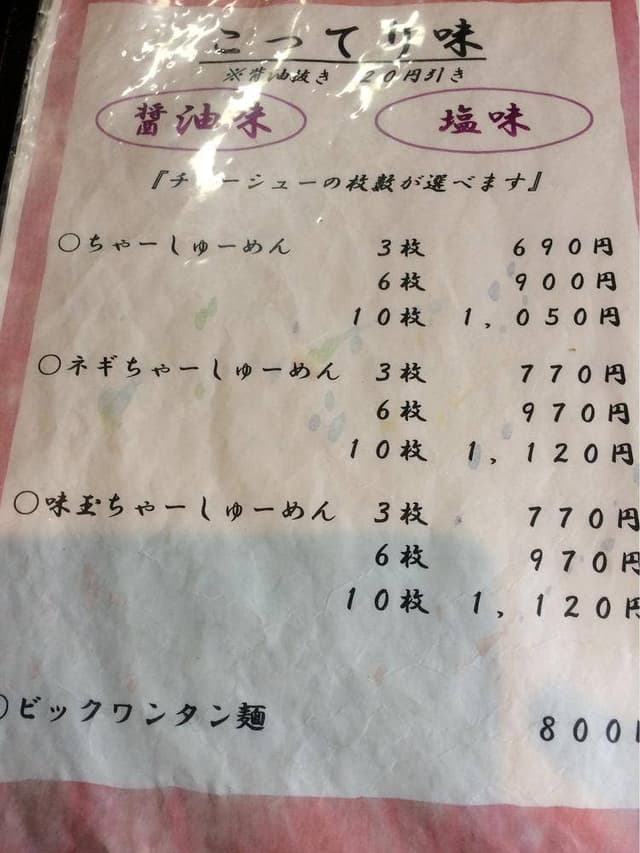 こってり味
※背油抜き 20円引き
醤油味 塩味
『チャーシューの枚数が選べます』
○ちゃーしゅーめん 3枚 690円
6枚 900円
10枚 1,050円
○ネギちゃーしゅーめん 3枚 770円
6枚 970円
10枚 1,120円
○味玉ちゃーしゅーめん 3枚 770円
6枚 970円
10枚 1,120円
○ビックワンタン麺 800円